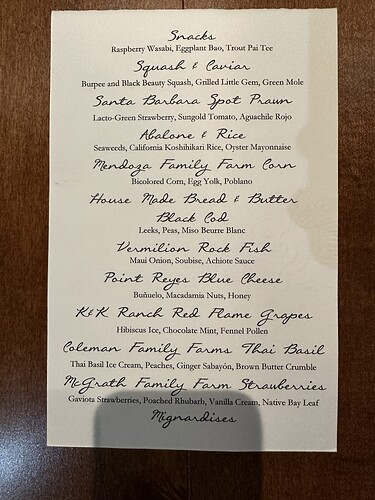 Snacks
Raspberry Wasabi, Eggplant Bao, Trout Pai Tee
Squash & Caviar
Burpee and Black Beauty Squash, Grilled Little Gem, Green Mole
Santa Barbara Spot Prawn
Lacto-Green Strawberry, Sungold Tomato, Aguachile Rojo
Abalone & Rice
Seaweeds, California Koshihikari Rice, Oyster Mayonnaise
Mendoza Family Farm Corn
Bicolored Corn, Egg Yolk, Poblano
House Made Bread & Butter
Black Cod
Leeks, Peas, Miso Beurre Blanc
Vermilion Rock Fish
Maui Onion, Soubise, Achiote Sauce
Point Reyes Blue Cheese
Buñuelo, Macadamia Nuts, Honey
K&K Ranch Red Flame Grapes
Hibiscus Ice, Chocolate Mint, Fennel Pollen
Coleman Family Farms Thai Basil
Thai Basil Ice Cream, Peaches, Ginger Sabayón, Brown Butter Crumble
McGrath Family Farm Strawberries
Gaviota Strawberries, Poached Rhubarb, Vanilla Cream, Native Bay Leaf
Mignardises